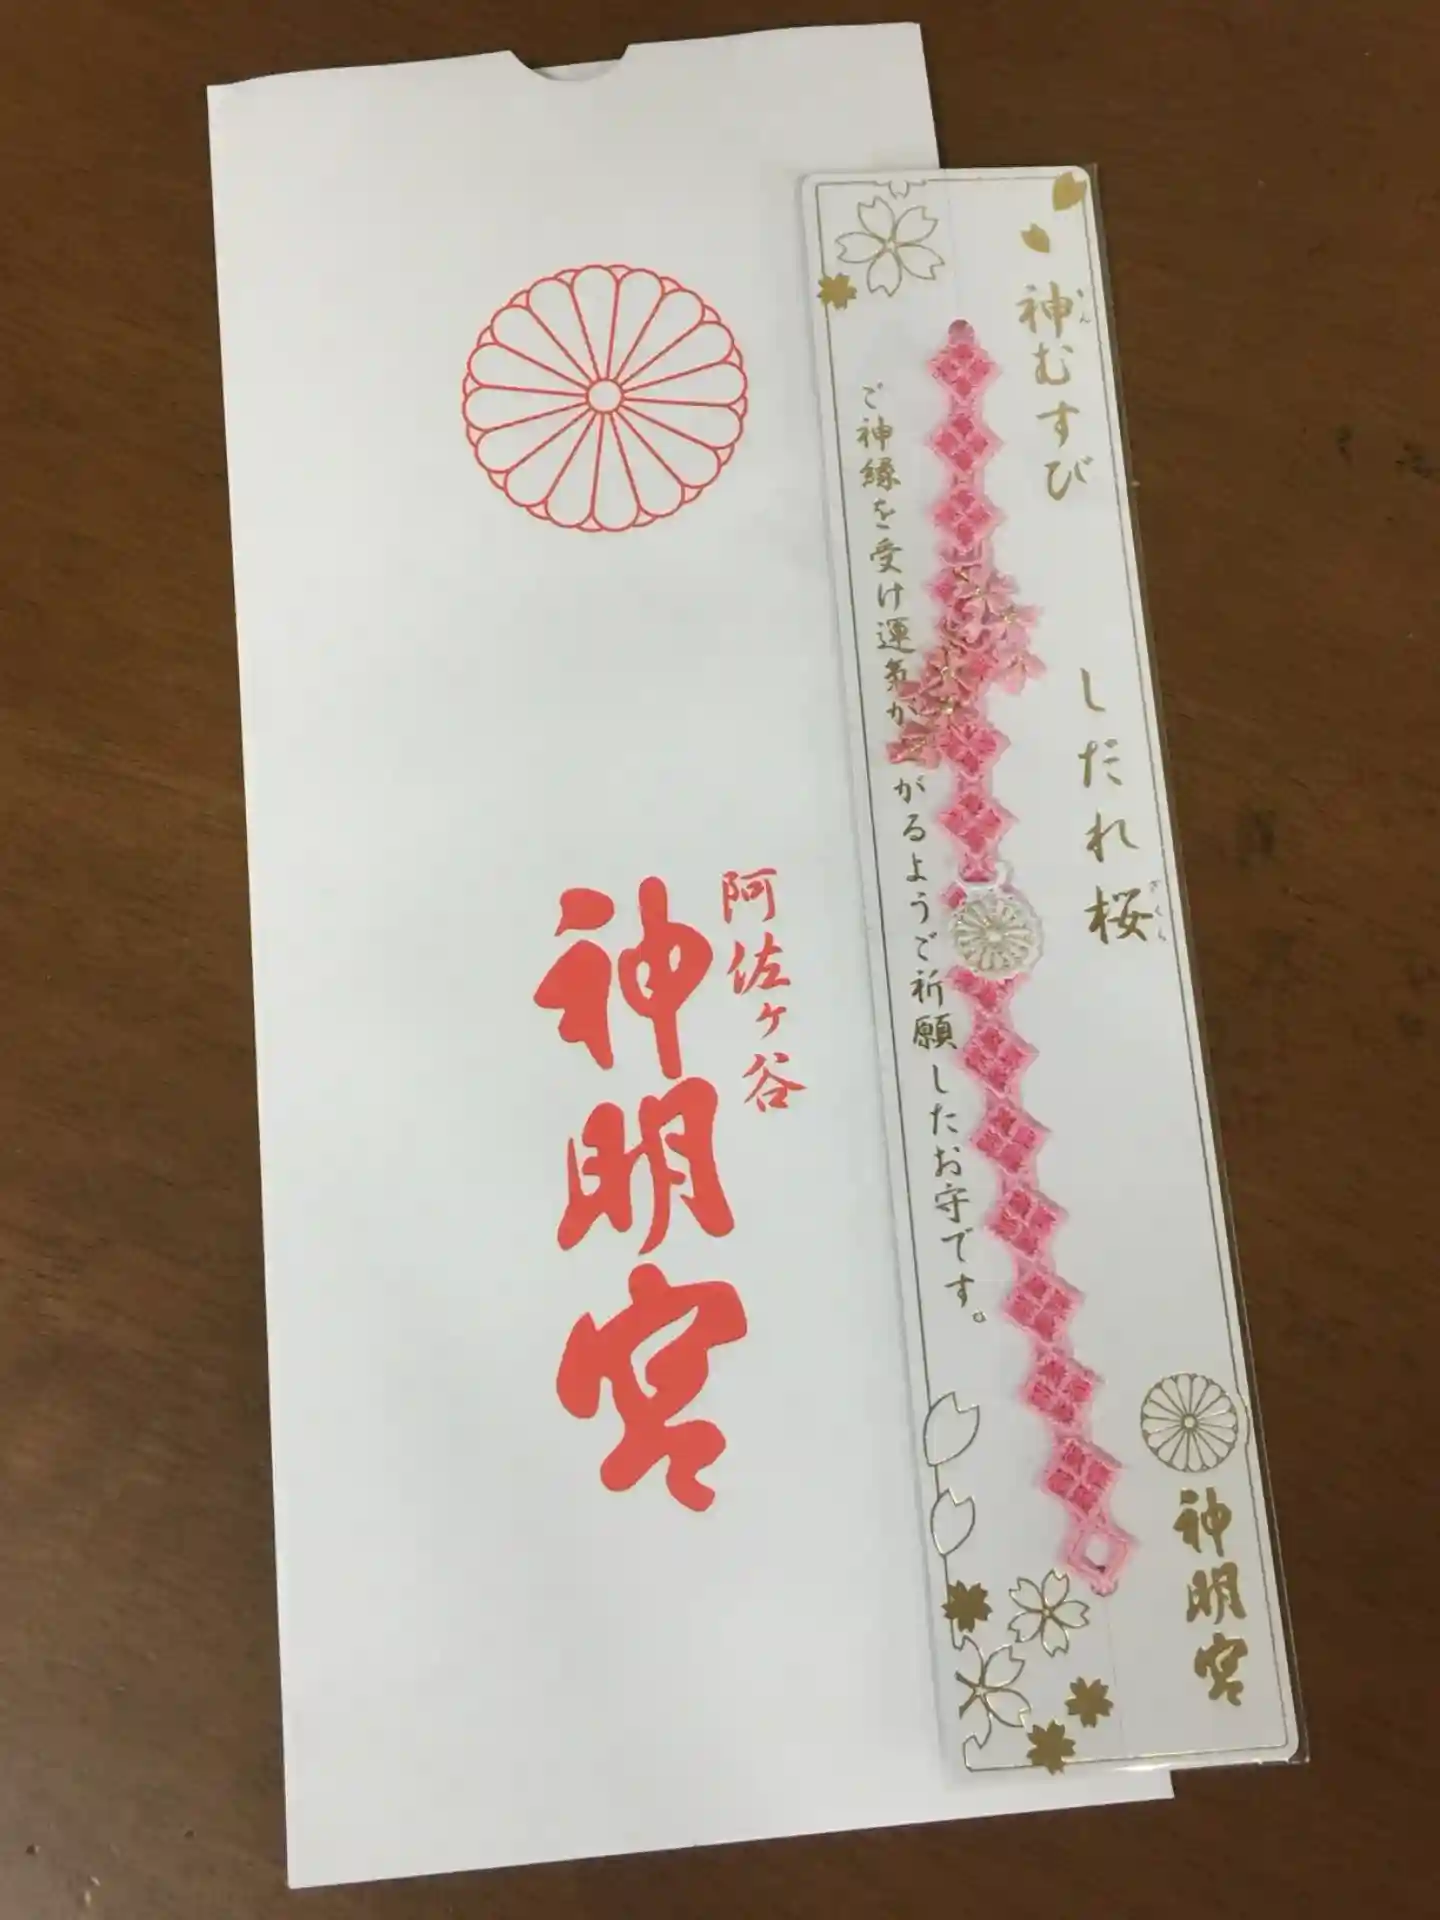 阿佐ヶ谷
神明宮
神むすび
かん
しだれ桜
ざくら
ご神縁を受け運気が がるようご祈願したお守です。
神明宮